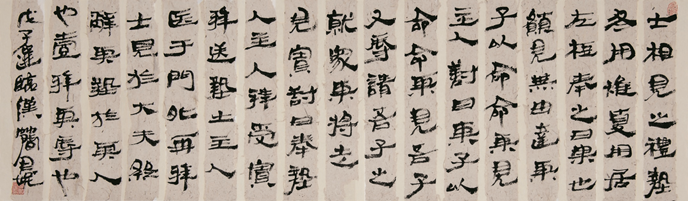 士相見之禮墊
冬用雉夏用居
左梪奉之曰某也
願見無由達某
子以命命某見
主人對曰某子以
命命某見吾子
又辱請吾子之
就家某將走
見賓對曰奉墊
入主人拜受賓
拜送墊士主人
送于門外再拜
士見於大夫終
辭其墊於其入
也壹拜其辱也
戊子達臨漢簡